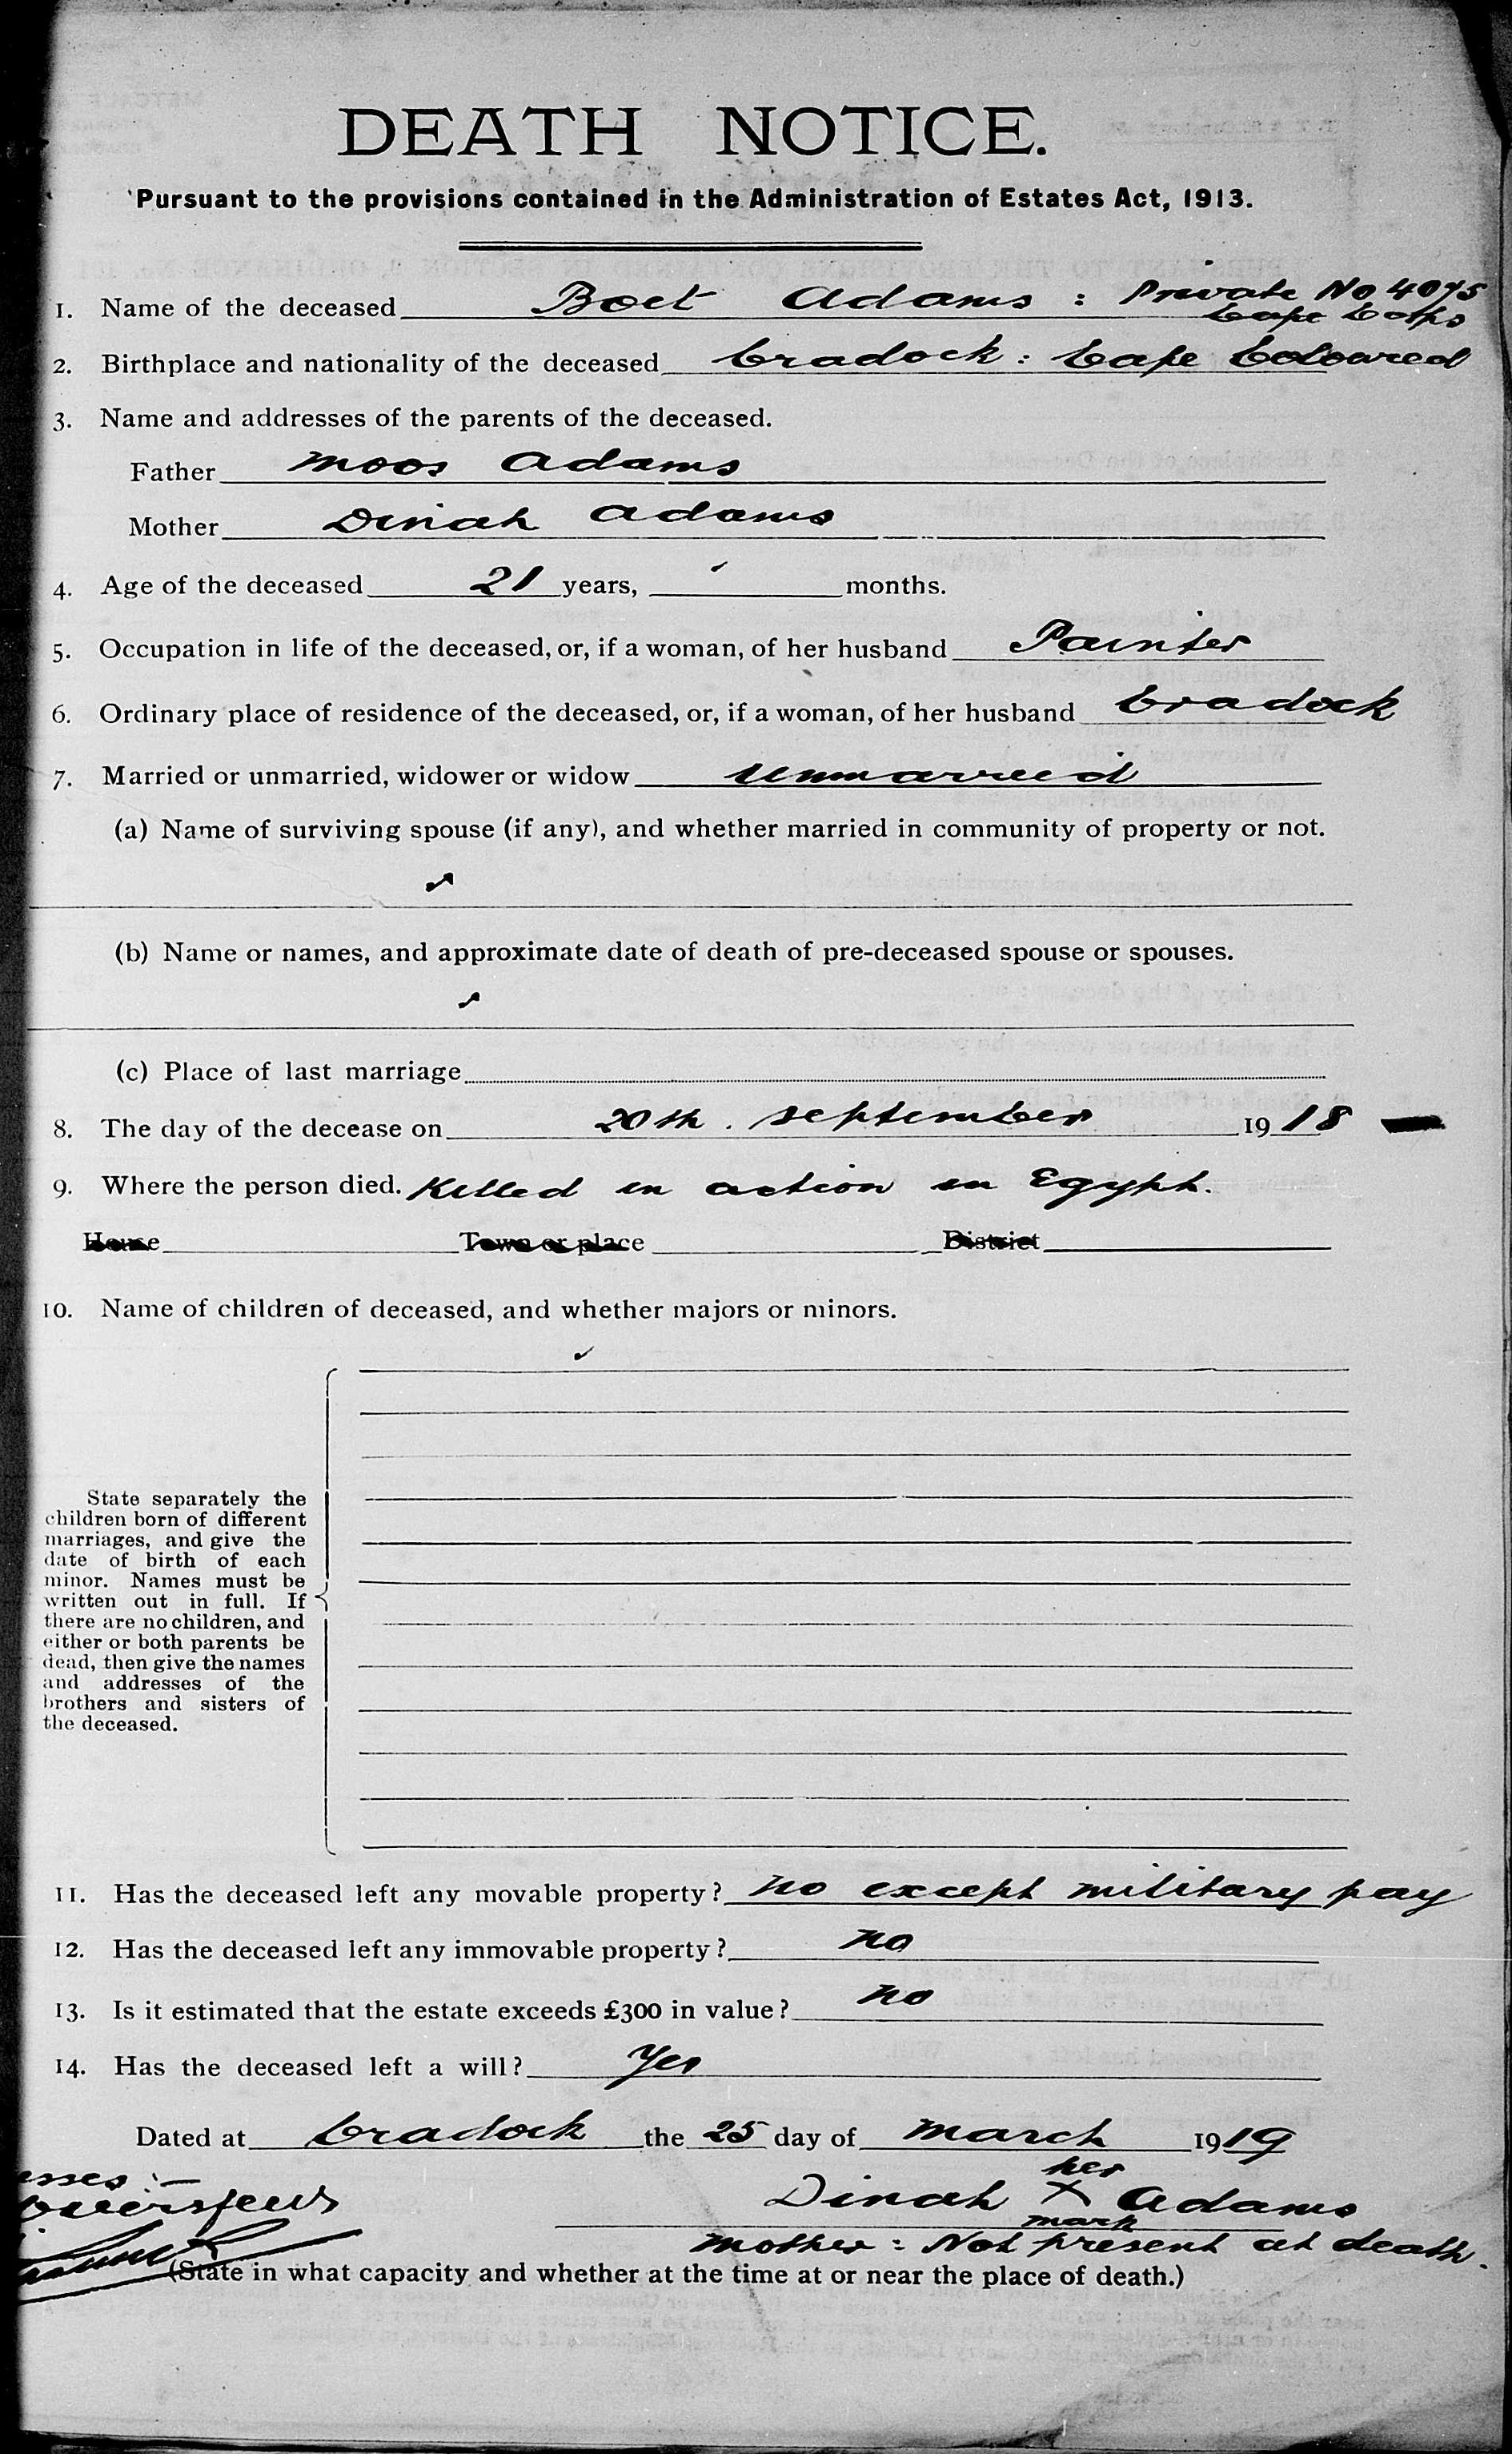 DEATH NOTICE.
Pursuant to the provisions contained in the Administration of Estates Act, 1913.
1. Name of the deceased Boet Adams : Private No 4075
Cape Corps
2. Birthplace and nationality of the deceased Cradock : Cape Coloured
3. Name and addresses of the parents of the deceased.
Father Moos Adams
Mother Dinah Adams
4. Age of the deceased 21 years, months.
5. Occupation in life of the deceased, or, if a woman, of her husband Painter
6. Ordinary place of residence of the deceased, or, if a woman, of her husband Cradock
7. Married or unmarried, widower or widow Unmarried
(a) Name of surviving spouse (if any), and whether married in community of property or not.
(b) Name or names, and approximate date of death of pre-deceased spouse or spouses.
(c) Place of last marriage
8. The day of the decease on 20th. September 1918
9. Where the person died. Killed in action in Egypt.
House Town or place District
10. Name of children of deceased, and whether majors or minors.
State separately the
children born of different
marriages, and give the
date of birth of each
minor. Names must be
written out in full. If
there are no children, and
either or both parents be
dead, then give the names
and addresses of the
brothers and sisters of
the deceased.
11. Has the deceased left any movable property? No except military pay
12. Has the deceased left any immovable property? No
13. Is it estimated that the estate exceeds £300 in value? No
14. Has the deceased left a will? Yes
Dated at Cradock the 25 day of March 1919
her
Dinah X Adams
mark
Mother : Not present at death.
(State in what capacity and whether at the time at or near the place of death.)